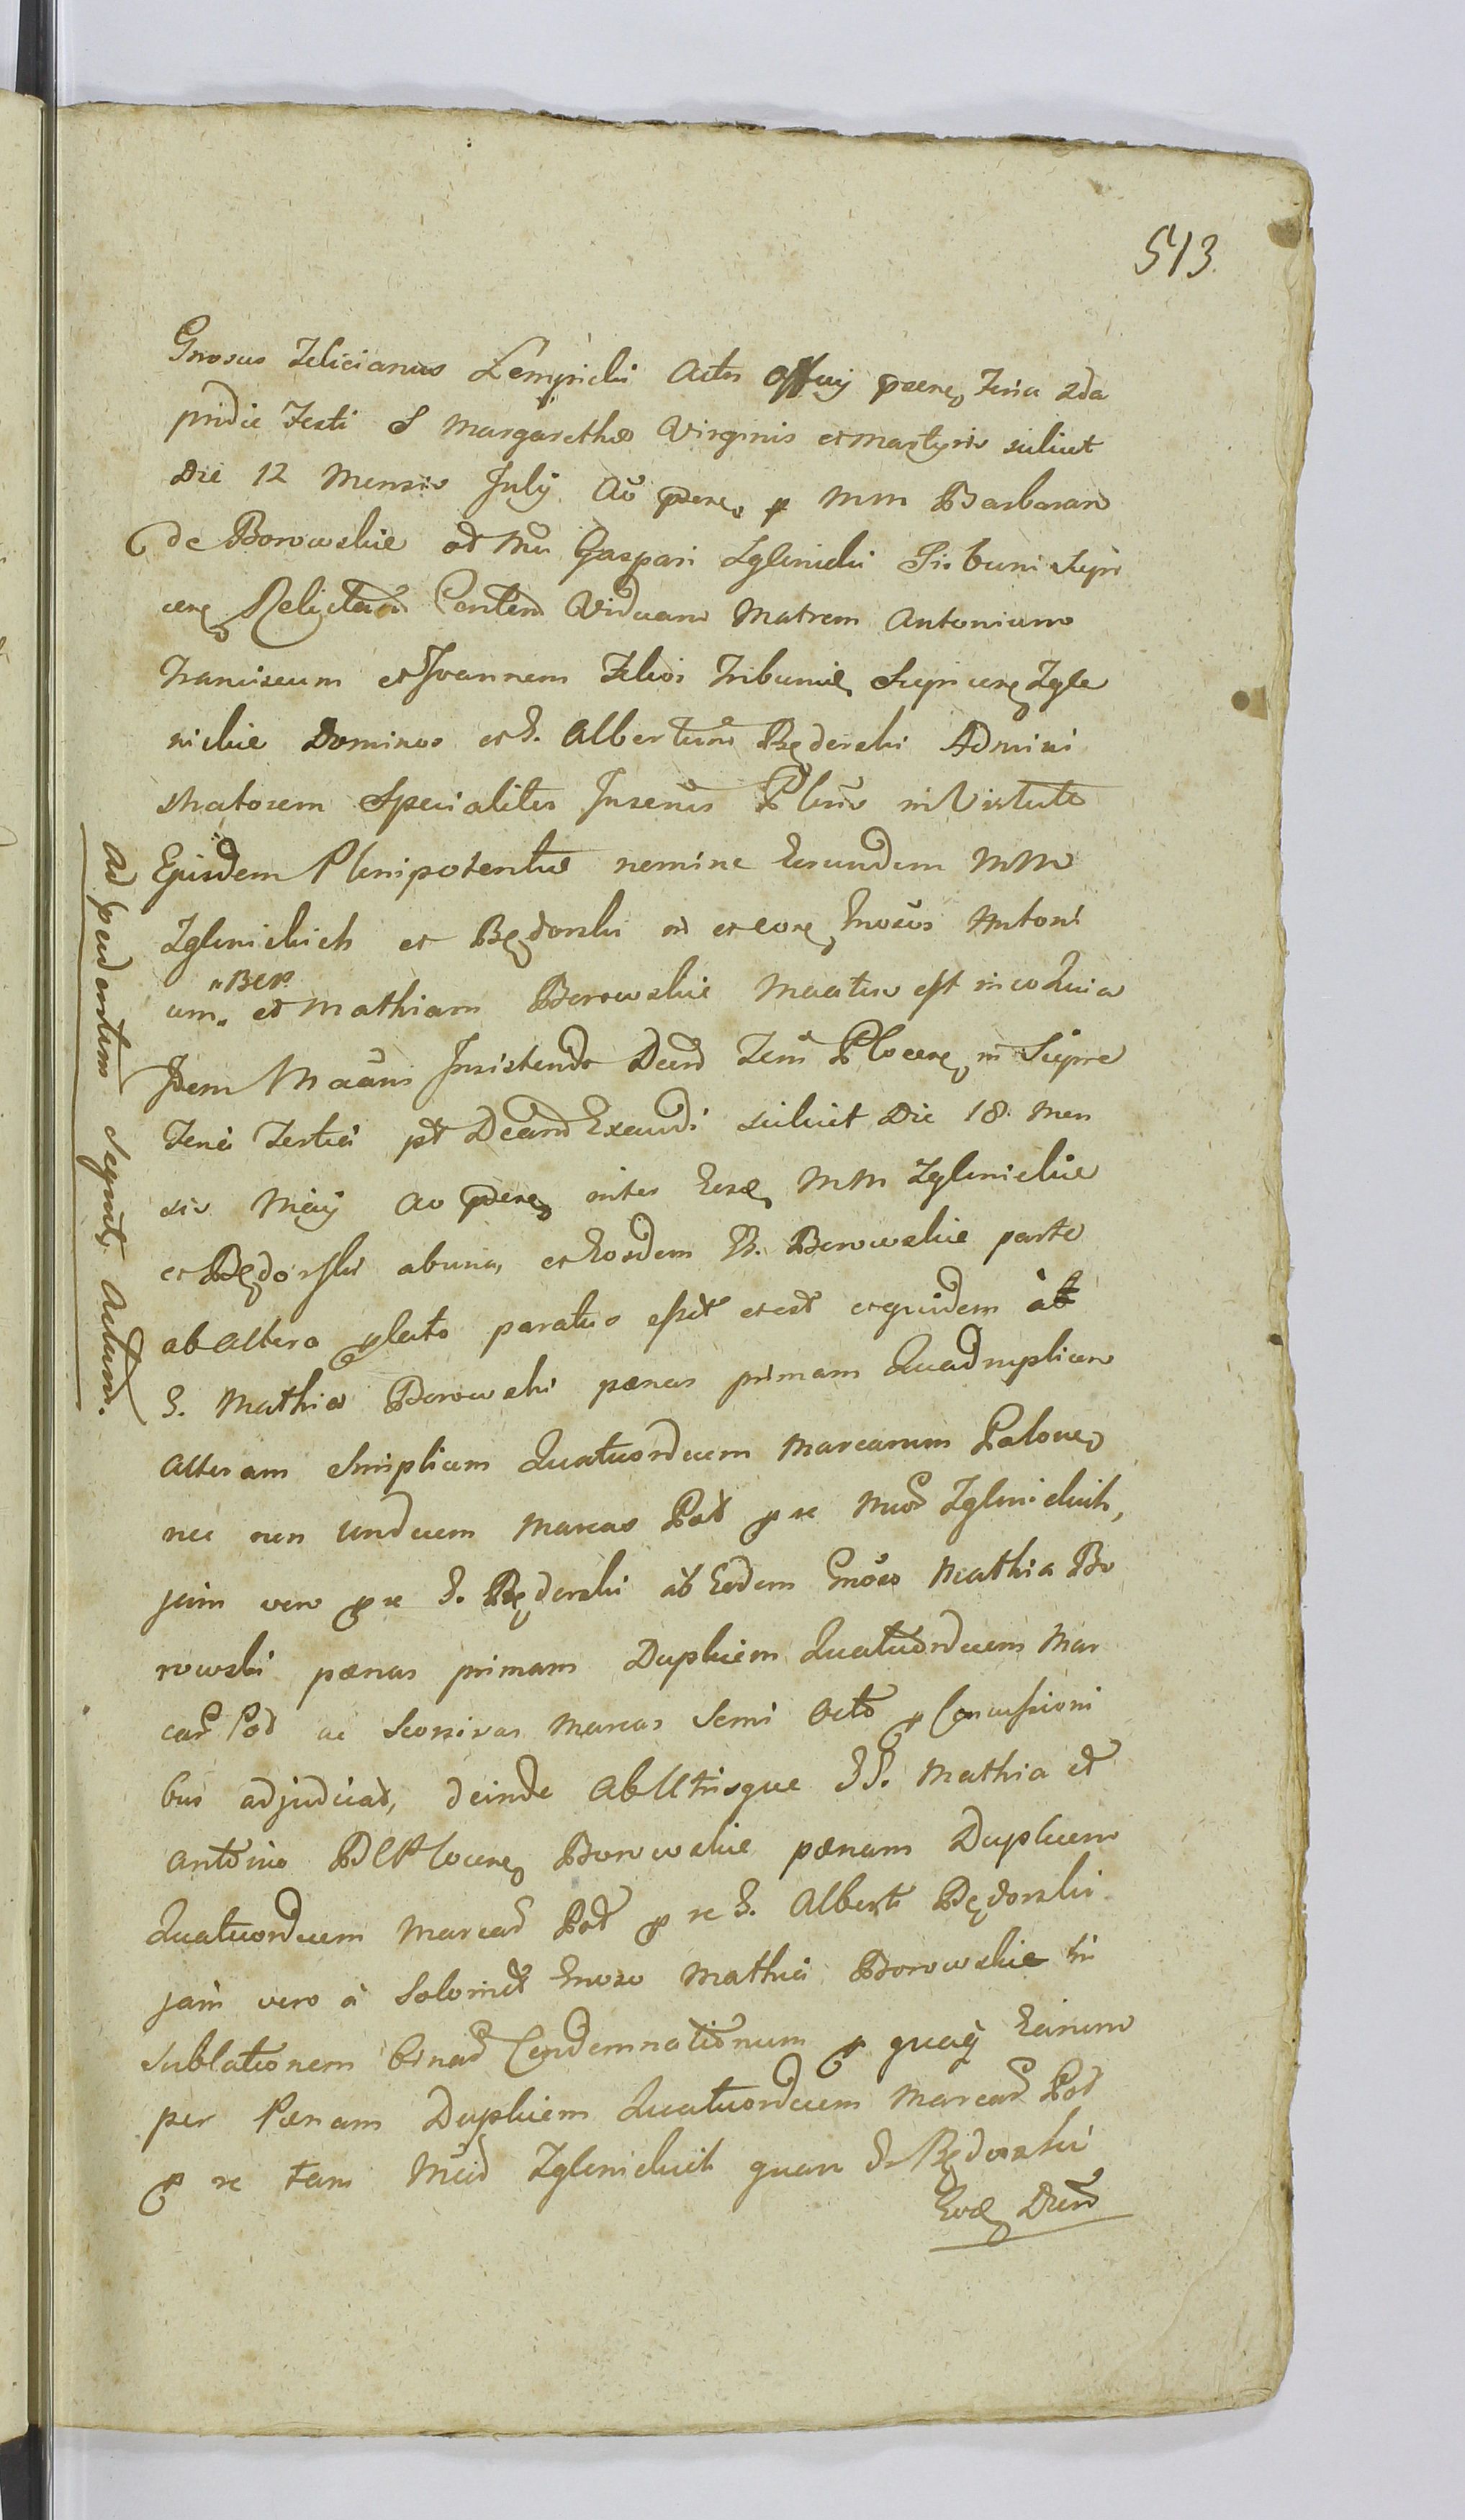 513.
Gnosus Felicianus Lempicki Actis Offcij pntibus Feria 2da
pridie Festi S Margarethæ Virginis et Martyris scilicet
Die 12 Mensis July Ao pnti p MM Barbaram
de Borowskie od Mci Gaspari Zglenicki Tribuni Sierp
cen Relictam Conten Viduam Matrem Antonium
Franciscum et Joannem Filios Tribuni Sierpcen Zgle
nickie Dominos et G. Albertum Będorski Admini
stratorem Specialiter Inserus Plenus in Virtute
Ejusdem Plenipotentiæ nomine Eorundem MM
Zglenickich et Będorski ad et cora Gnosos Antoni
um "BCP" et Mathiam Borowskie in eo Quia
Idem Insistendo Decreto Terri Plocen in Sierpc
Feria Tertia pt Dcam Exaudi scilicet Die 18. Men
sis Maij Ao pnti inter Eosd MM Zglenickie
et Będorski ab una, et Eosdem G. Borowskie parte
ab altera lato paratus esset et est et quidem ab
G. Mathia Borowski pænas primam Quadruplicem
Alteram Simplicem Quatuordecim Marcarum Polonic
nec non undecim Marcas Pol p se Mcos Zglenickich,
jam vero p se G. Będorski ab Eodem Gnoso Mathia Bo
rowski pænas primam Duplicem Quatuordecim Mar
car Pol ac Seorsivas Marcas Semi Octo p Concussioni
bus adjudicat, deinde Ab Utrisque GG. Mathia et
Antonio BCPlocen Borowskie pænam Duplicem
Quatuordecim Marcar Pol p se G. Alberto Będorski
jam vero à Solomet Gnoso Mathia Borowskie in
sublationem binar Condemnationum p quas Earum
per Pænam Duplicem Quatuordecim Marcar Pol
p se tam Mcis Zglenickich quam G. Będorski
Eod Decr
Ad pendentem Sequit Actum.